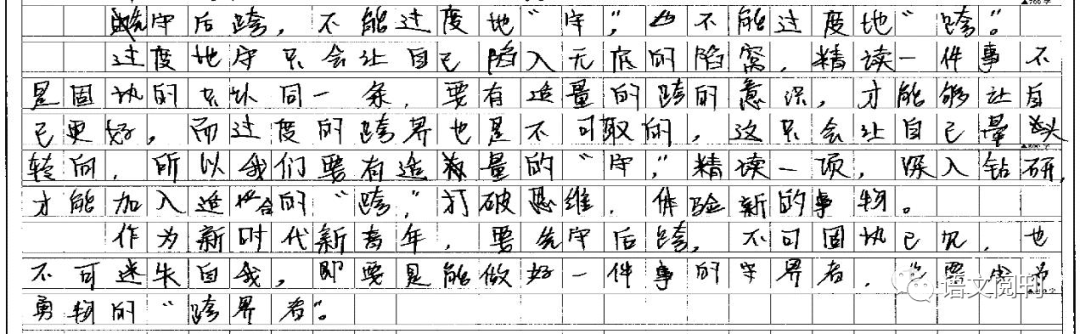 先守后跨，不能过度地“守”，也不能过度地“跨”。
过度地守只会让自己陷入无底的陷窝，精读一件事不
是固执的只知同一条，要有适量的跨的意识，才能够让自
己更好，而过度的跨界也是不可取的，这只会让自己晕头
转向，所以我们要有适量的“守”，精读一项，深入钻研，
才能加入适合的“跨”，打破思维，体验新的事物。
作为新时代新青年，要先守后跨，不可固执己见，也
不可迷失自我，即要是能做好一件事的守界者，也要
勇的“跨界者”。
语文阅刊